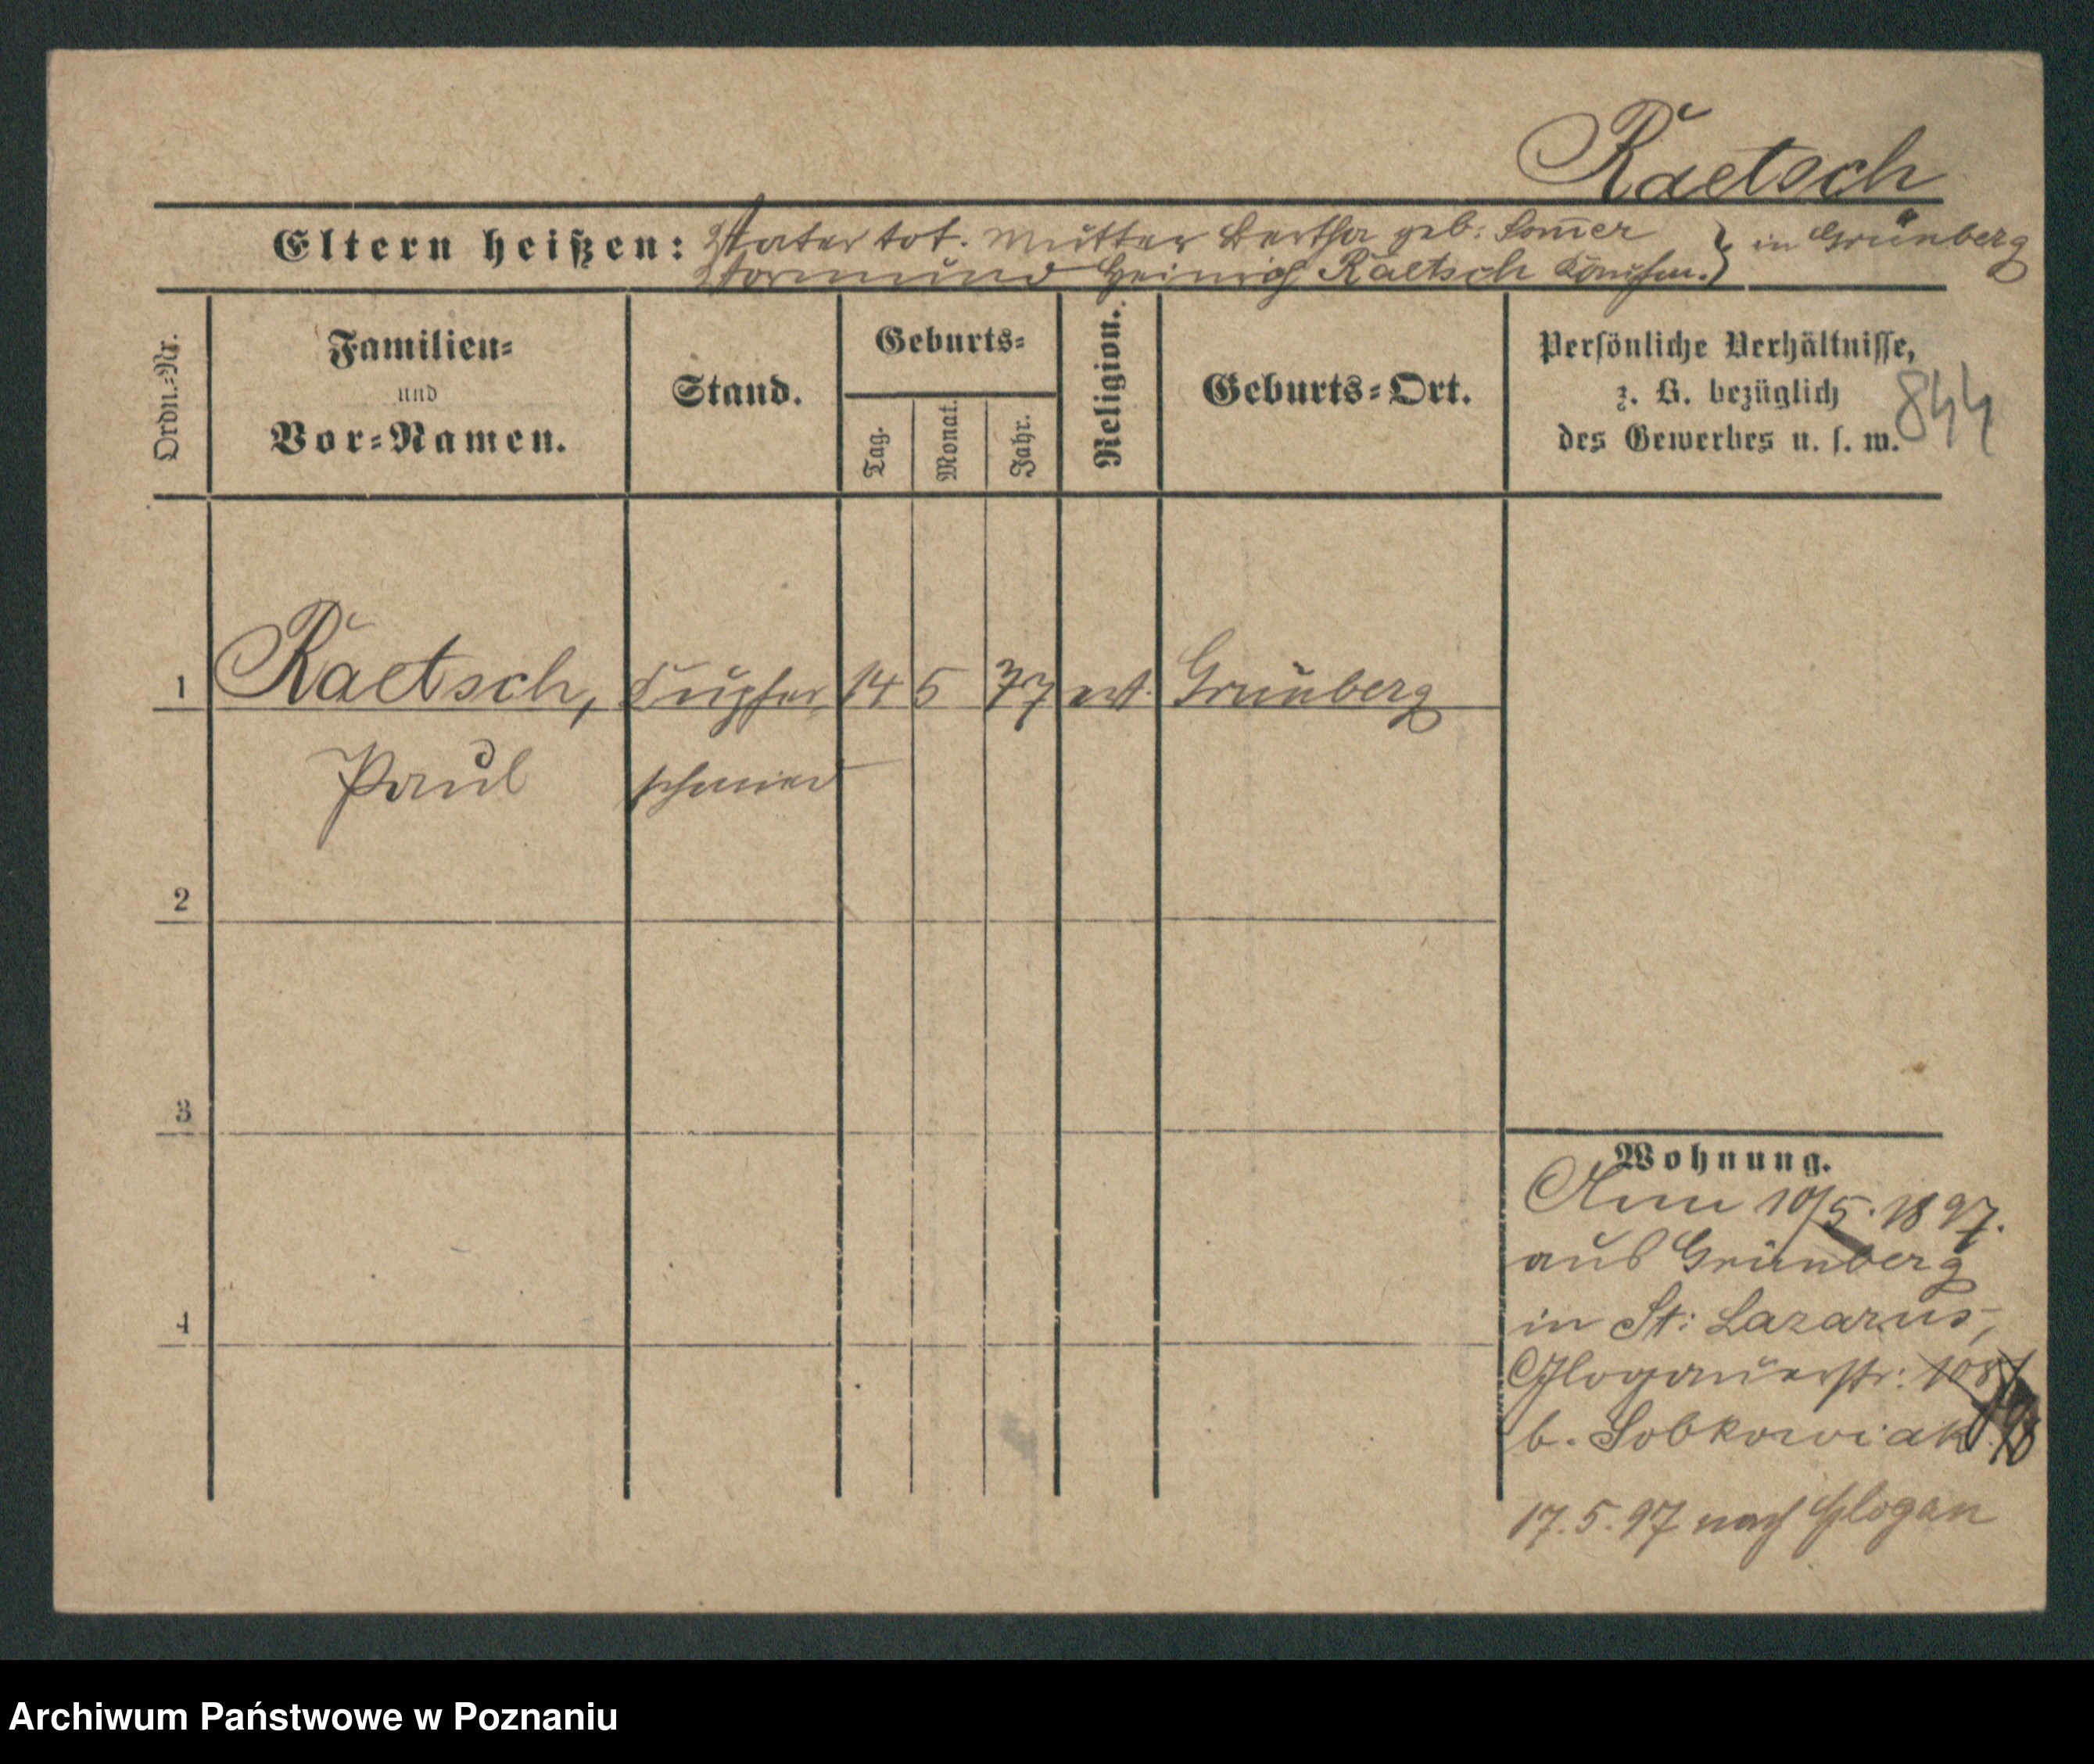 Raetsch
Eltern heißen: Vater tot. Mutter Bertha geb: Som̄er
Vormund Heinrich Raetsch Kaufm. } in Grünberg
Ordn.=Nr.
Familien=
und
Vor=Namen.
Stand.
Geburts=
Tag.
Monat.
Jahr.
Religion.
Geburts=Ort.
Persönliche Verhältnisse,
z. B. bezüglich
des Gewerbes u. s. w.
844
1 Raetsch, Kupfer 14 5 77 Grünberg
Paul schmied
2
3
4
Wohnung.
Am 10/5. 1897.
aus Grünberg
in St: Lazarus,
Glogauerstr: 108
b. Sobkowiak
17.5.97 nach Glogau
Archiwum Państwowe w Poznaniu